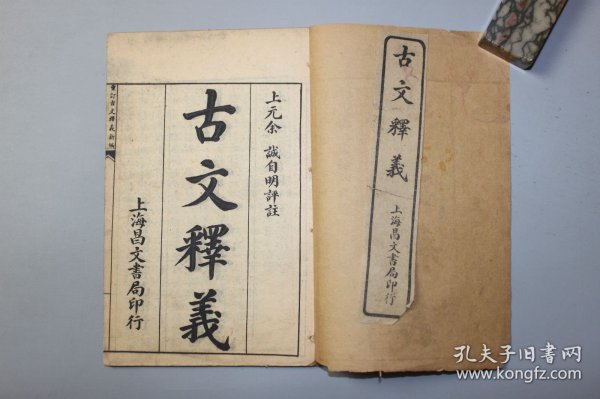 古文釋義
上海昌文書局印行
上元余誠自明評註
古文釋義
上海昌文書局印行
重訂古文釋義新編
孔夫子旧书网
www.kongfz.com